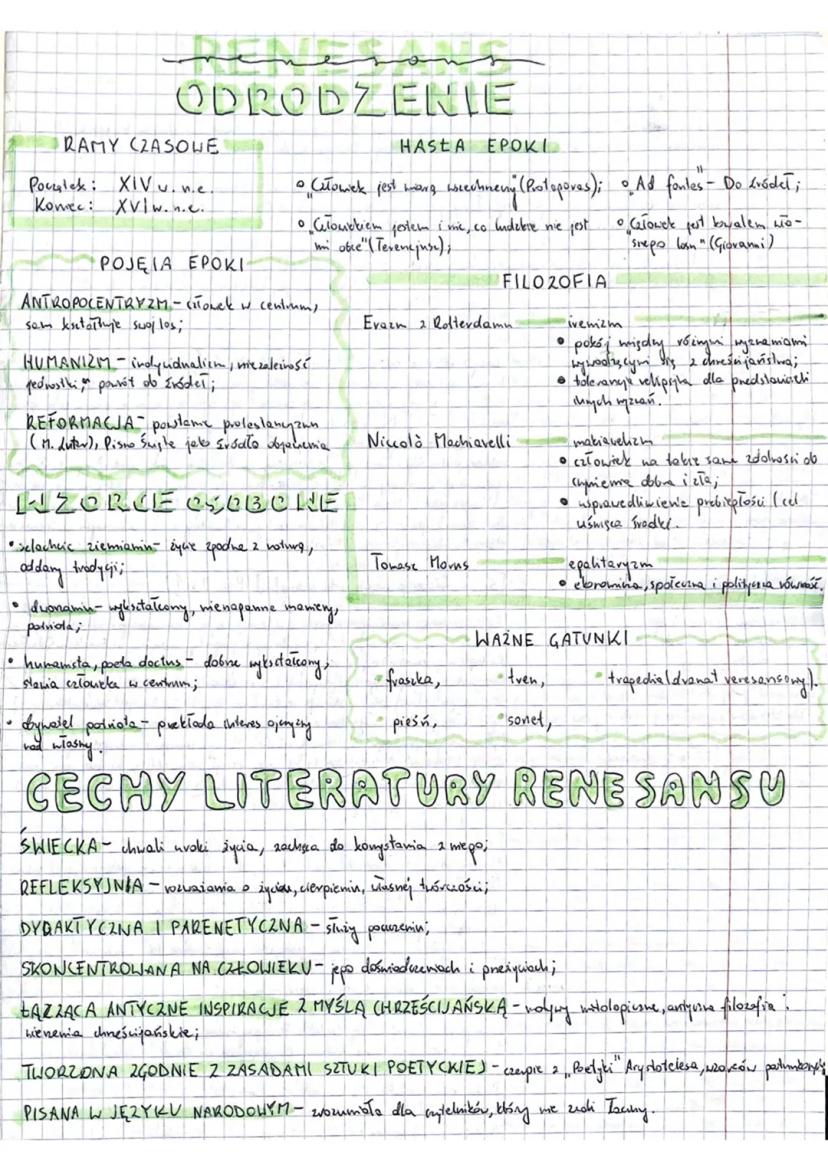 RENESANS
renesans
ODRODZENIE
RAMY CZASOWE
Początek: XIV w. n.e.
Koniec: XVI w. n.e.
HASŁA EPOKI
"Człowek jest miarą wszechrzeczy" (Protagoras);
"Ad fontes" - Do źródeł;
"Człowiekiem jestem i nic, co ludzkie nie jest
mi obce" (Terencjusz);
"Człowiek jest kowalem wła-
snego losu" (Giovanni)
POJĘCIA EPOKI
ANTROPOCENTRYZM - człowiek w centrum,
sam kształtuje swój los;
HUMANIZM - indywidualizm, niezależność
jednostki, powrót do źródeł;
REFORMACJA - powstanie protestantyzmu
(M. Luter), Pismo Święte jako źródło objawienia
FILOZOFIA
Erazm z Rotterdamu - irenizm
• pokój między różnymi wyznaniami
wywodzącymi się z chrześcijaństwa;
• tolerancja religijna dla przedstawicieli
innych wyznań.
Niccolò Machiavelli - makiavelizm
• człowiek ma takie same zdolności do
czynienia dobra i zła;
• usprawiedliwienie przebiegłości (cel
uświęca środki.
Tomasz Morus - egalitaryzm
• ekonomiczna, społeczna i polityczna równość.
WZORCE OSOBOWE
• szlachcic ziemianin - życie zgodne z naturą,
oddany tradycji;
• dworzanin - wykształcony, nienaganne maniery,
patriota;
• humanista, poeta doctus - dobrze wykształcony,
stawia człowieka w centrum;
• obywatel patriota - przekłada interes ojczyzny
nad własny.
WAŻNE GATUNKI
• fraszka,
• tren,
• tragedia (dramat renesansowy).
• pieśń,
• sonet,
CECHY LITERATURY RENESANSU
ŚWIECKA - chwali uroki życia, zachęca do korzystania z niego;
REFLEKSYJNIA - rozważania o życiu, cierpieniu, własnej twórczości;
DYDAKTYCZNA I PARENETYCZNA - służy pouczeniu;
SKONCENTROWANA NA CZŁOWIEKU - jego doświadczeniach i przeżyciach;
ŁĄCZĄCA ANTYCZNE INSPIRACJE Z MYŚLĄ CHRZEŚCIJAŃSKĄ - motywy mitologiczne, antyczna filozofia i
wierzenia chrześcijańskie;
TWORZONA ZGODNIE Z ZASADAMI SZTUKI POETYCKIEJ - czerpie z "Poetyki" Arystotelesa, wzorców
PISANA W JĘZYKU NARODOWYM - zrozumiała dla czytelników, który nie znali łaciny.